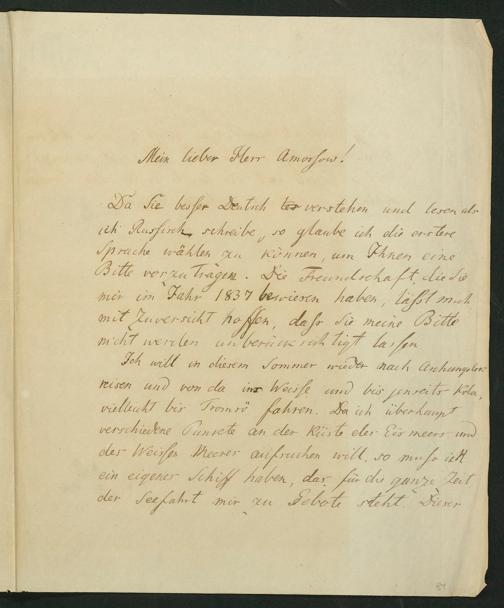 Mein lieber Herr Amossow!
Da Sie besser Deutsch verstehen und lesen als
ich Russisch schreibe, so glaube ich die erstere
Sprache wählen zu können, um Ihnen eine
Bitte vorzutragen. Die Freundschaft, die Sie
mir im Jahr 1837 bewiesen haben, läßt mich
mit Zuversicht hoffen, daß Sie meine Bitte
nicht werden unberücksichtigt lassen
Ich will in diesem Sommer wieder nach Archangelsk
reisen und von da ins Weisse und bis jenseits Kola,
vielleicht bis Tromsö fahren. Da ich überhaupt
verschiedene Puncte an der Küste des Eismeers und
des Weissen Meeres aufsuchen will, so muß ich
ein eigenes Schiff haben, das für die ganze Zeit
der Seefahrt mir zu Gebote steht. Dieser